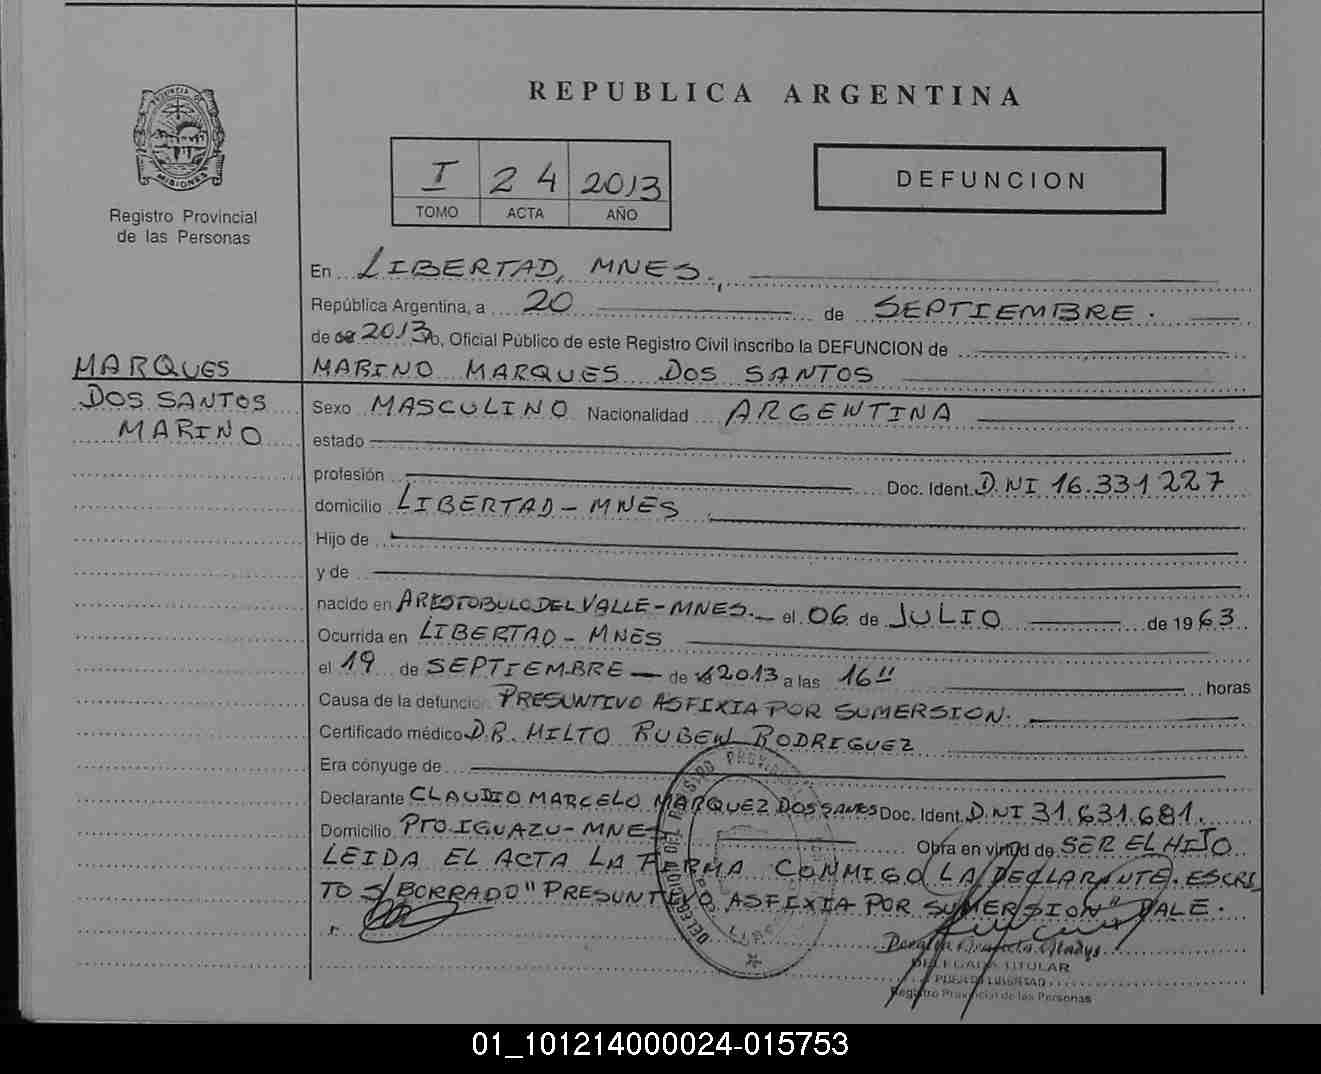 REPUBLICA ARGENTINA
PROVINCIA DE
MISIONES
Registro Provincial
de las Personas
I 24 2013
TOMO ACTA AÑO
DEFUNCION
En LIBERTAD, MNES.,
República Argentina, a 20 de SEPTIEMBRE.
de 2013, Oficial Público de este Registro Civil inscribo la DEFUNCION de
MARINO MARQUES DOS SANTOS
MARQUES
DOS SANTOS
MARINO
Sexo MASCULINO Nacionalidad ARGENTINA
estado
profesión Doc. Ident. D.NI 16.331.227
domicilio LIBERTAD - MNES
Hijo de
y de
nacido en ARISTOBULO DEL VALLE - MNES. el 06 de JULIO de 1963
Ocurrida en LIBERTAD - MNES
el 19 de SEPTIEMBRE de 2013 a las 16" horas
Causa de la defunción PRESUNTIVO ASFIXIA POR SUMERSION.
Certificado médico D.R. MILTO RUBEN RODRIGUEZ
Era cónyuge de
Declarante CLAUDIO MARCELO MARQUEZ DOS Doc. Ident. D.NI 31.631.681.
Domicilio PTO. IGUAZU - MNES Obra en virtud de SER EL HIJO
LEIDA EL ACTA LA FIRMA CONMIGO LA DECLARANTE. ESCRI
TO S/BORRADO "PRESUNTIVO ASFIXIA POR SUMERSION" VALE.
Gladys
DELEGADA TITULAR
PUERTO LIBERTAD
Registro Provincial de las Personas
01_101214000024-015753